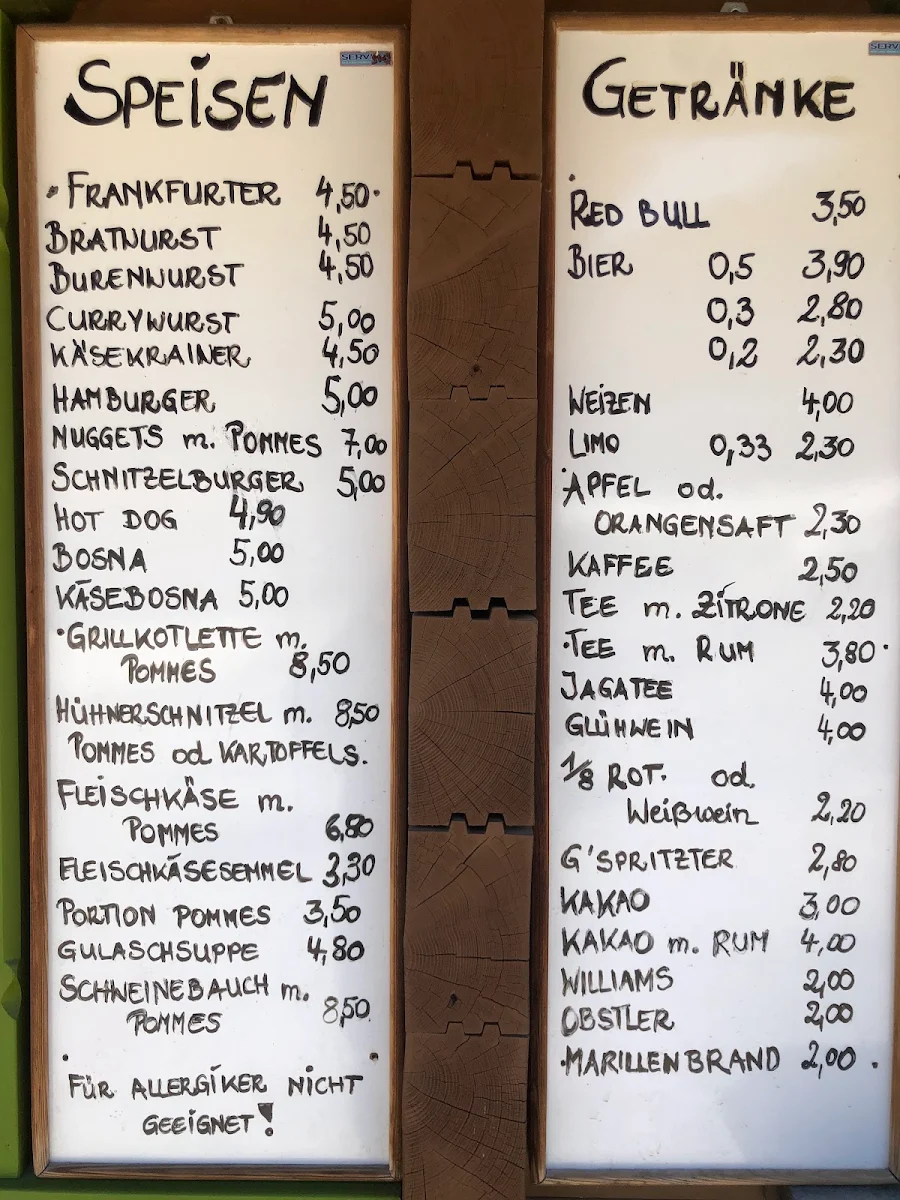 SPEISEN
• FRANKFURTER 4,50 •
BRATWURST 4,50
BURENWURST 4,50
CURRYWURST 5,00
KÄSEKRAINER 4,50
HAMBURGER 5,00
NUGGETS m. POMMES 7,00
SCHNITZELBURGER 5,00
HOT DOG 4,90
BOSNA 5,00
KÄSEBOSNA 5,00
• GRILLKOTLETTE m.
POMMES 8,50
HÜHNERSCHNITZEL m. 8,50
POMMES od KARTOFFELS.
FLEISCHKÄSE m.
POMMES 6,80
FLEISCHKÄSESEMMEL 3,30
PORTION POMMES 3,50
GULASCHSUPPE 4,80
SCHWEINEBAUCH m.
POMMES 8,50
FÜR ALLERGIKER NICHT
GEEIGNET!
GETRÄNKE
RED BULL 3,50
BIER 0,5 3,90
0,3 2,80
0,2 2,30
WEIZEN 4,00
LIMO 0,33 2,30
APFEL od.
ORANGENSAFT 2,30
KAFFEE 2,50
TEE m. ZITRONE 2,20
• TEE m. RUM 3,80 •
JAGATEE 4,00
GLÜHWEIN 4,00
1/8 ROT. od.
Weißwein 2,20
G'SPRITZTER 2,80
KAKAO 3,00
KAKAO m. RUM 4,00
WILLIAMS 2,00
OBSTLER 2,00
• MARILLENBRAND 2,00 .